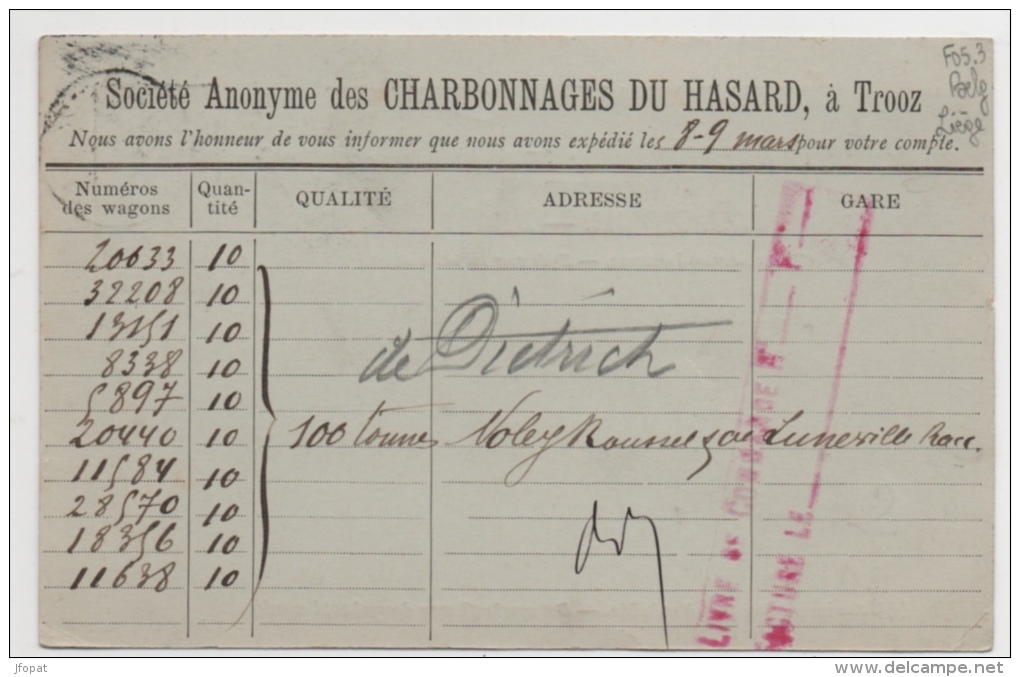 F05.3
Belg
Liège
Société Anonyme des CHARBONNAGES DU HASARD, à Trooz
Nous avons l'honneur de vous informer que nous avons expédié les 8-9 mars pour votre compte.
Numéros des wagons Quan-tité QUALITÉ ADRESSE GARE
20633 10
32208 10
13151 10
8338 10
de Dietrich
5897 10
20440 10 100 tonnes Noley Lunéville Racc.
11584 10
28570 10
18356 10
11638 10
LIVRE DE COMMANDE N
FACTURE LE
jfopat
www.delcampe.net